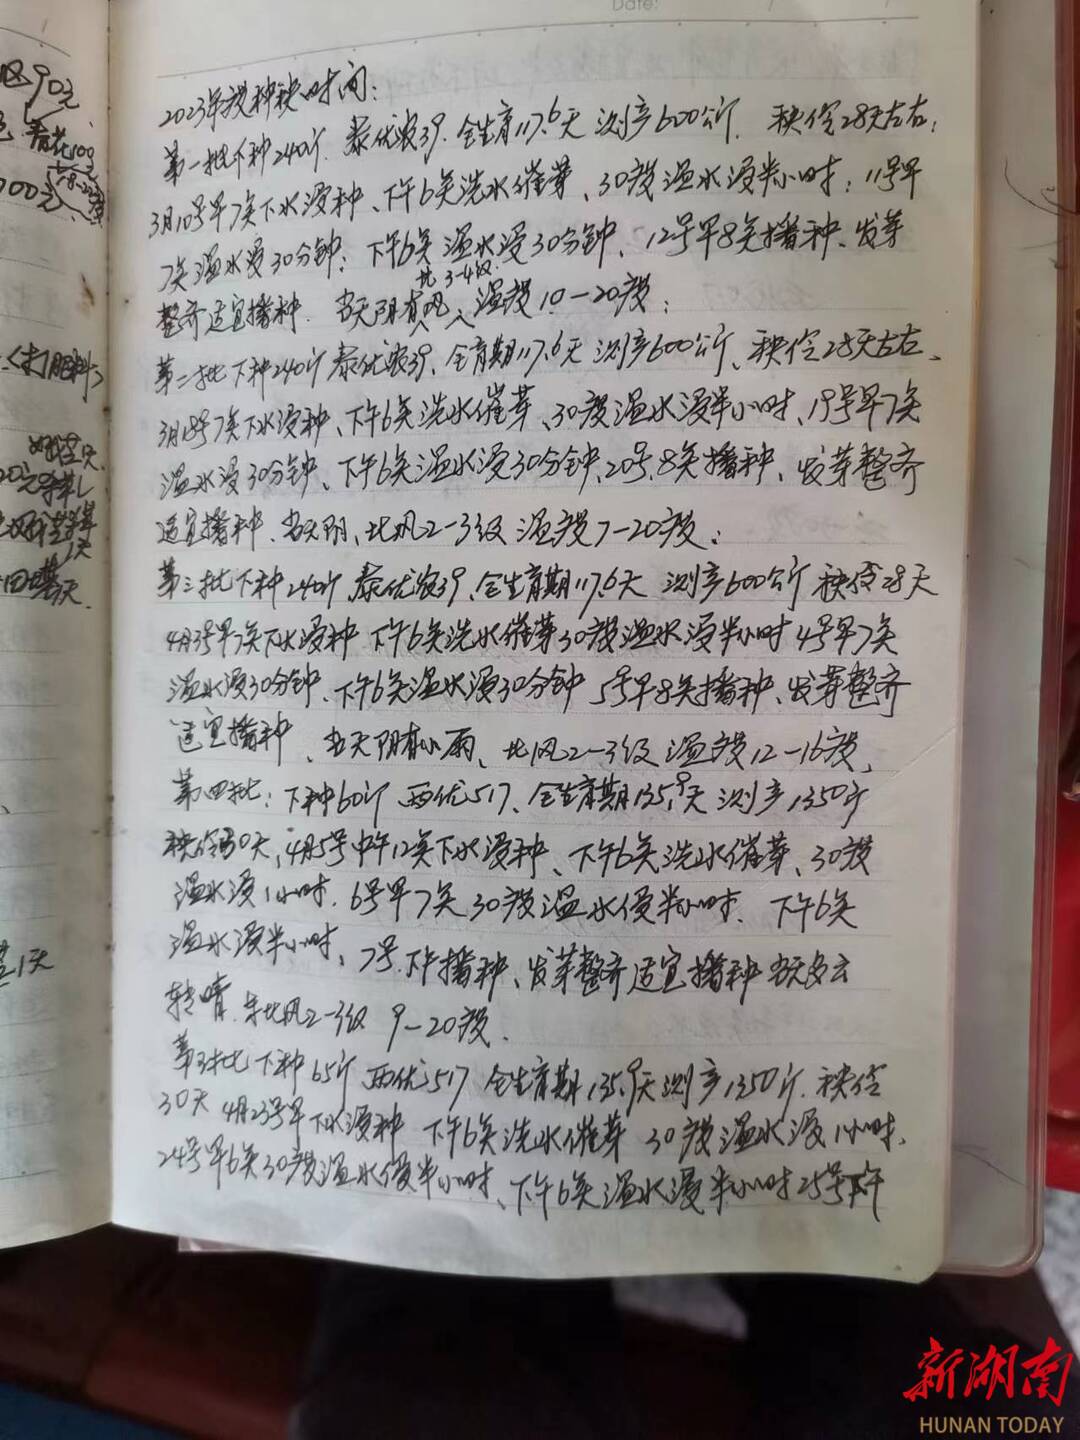 Date:
2023年浸种秧时间:
第一批下种240斤 泰优农39. 全生育117.6天 测产600公斤. 秧伶28天左右;
3月10号早7点下水浸种、下午6点洗水催芽、30度温水浸半小时; 11号早
7点温水浸30分钟; 下午6点温水浸30分钟, 12号早8点播种、发芽
整齐适宜播种. 当天阴有北风3-4级, 温度10-20度;
第二批下种240斤泰优农39、全育期117.6天 测产600公斤、秧伶28天左右、
3月18号7点下水浸种、下午6点洗水催芽、30度温水浸半小时、19号早7点
温水浸30分钟、下午6点温水浸30分钟、20号.8点播种、发芽整齐
适宜播种. 当天阴、北风2-3级 温度7-20度;
第三批下种240斤 泰优农39、全生育期117.6天 测产600公斤 秧伶28天
4月3号早7点下水浸种 下午6点洗水催芽30度温水浸半小时 4号早7点
温水浸30分钟、下午6点温水浸30分钟 5号早8点播种、发芽整齐
适宜播种、当天阴有小雨、北风2-3级 温度12-16度、
第四批: 下种60斤 两优517、全生育期135.9天 测产1350斤
秧伶30天、4月5号中午12点下水浸种、下午6点洗水催芽、30度
温水浸1小时. 6号早7点30度温水侵半小时. 下午6点
温水浸半小时, 7号.下午播种、发芽整齐适宜播种 当天多云
转晴. 东北风2-3级 9-20度.
第5批下种65斤 两优517 全生育期135.9天测产1350斤. 秧伶
30天 4月23号早下水浸种 下午6点洗水催芽 30度温水浸1小时.
24号早6点30度温水侵半小时、下午6点温水浸半小时25号下午
90元
青花100
00元
<打肥料>
1天
田 天
1天
新湖南
HUNAN TODAY